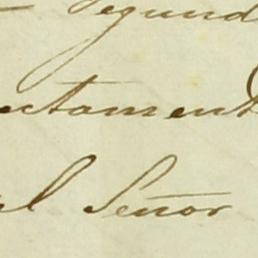 Segund
ectament
al Señor